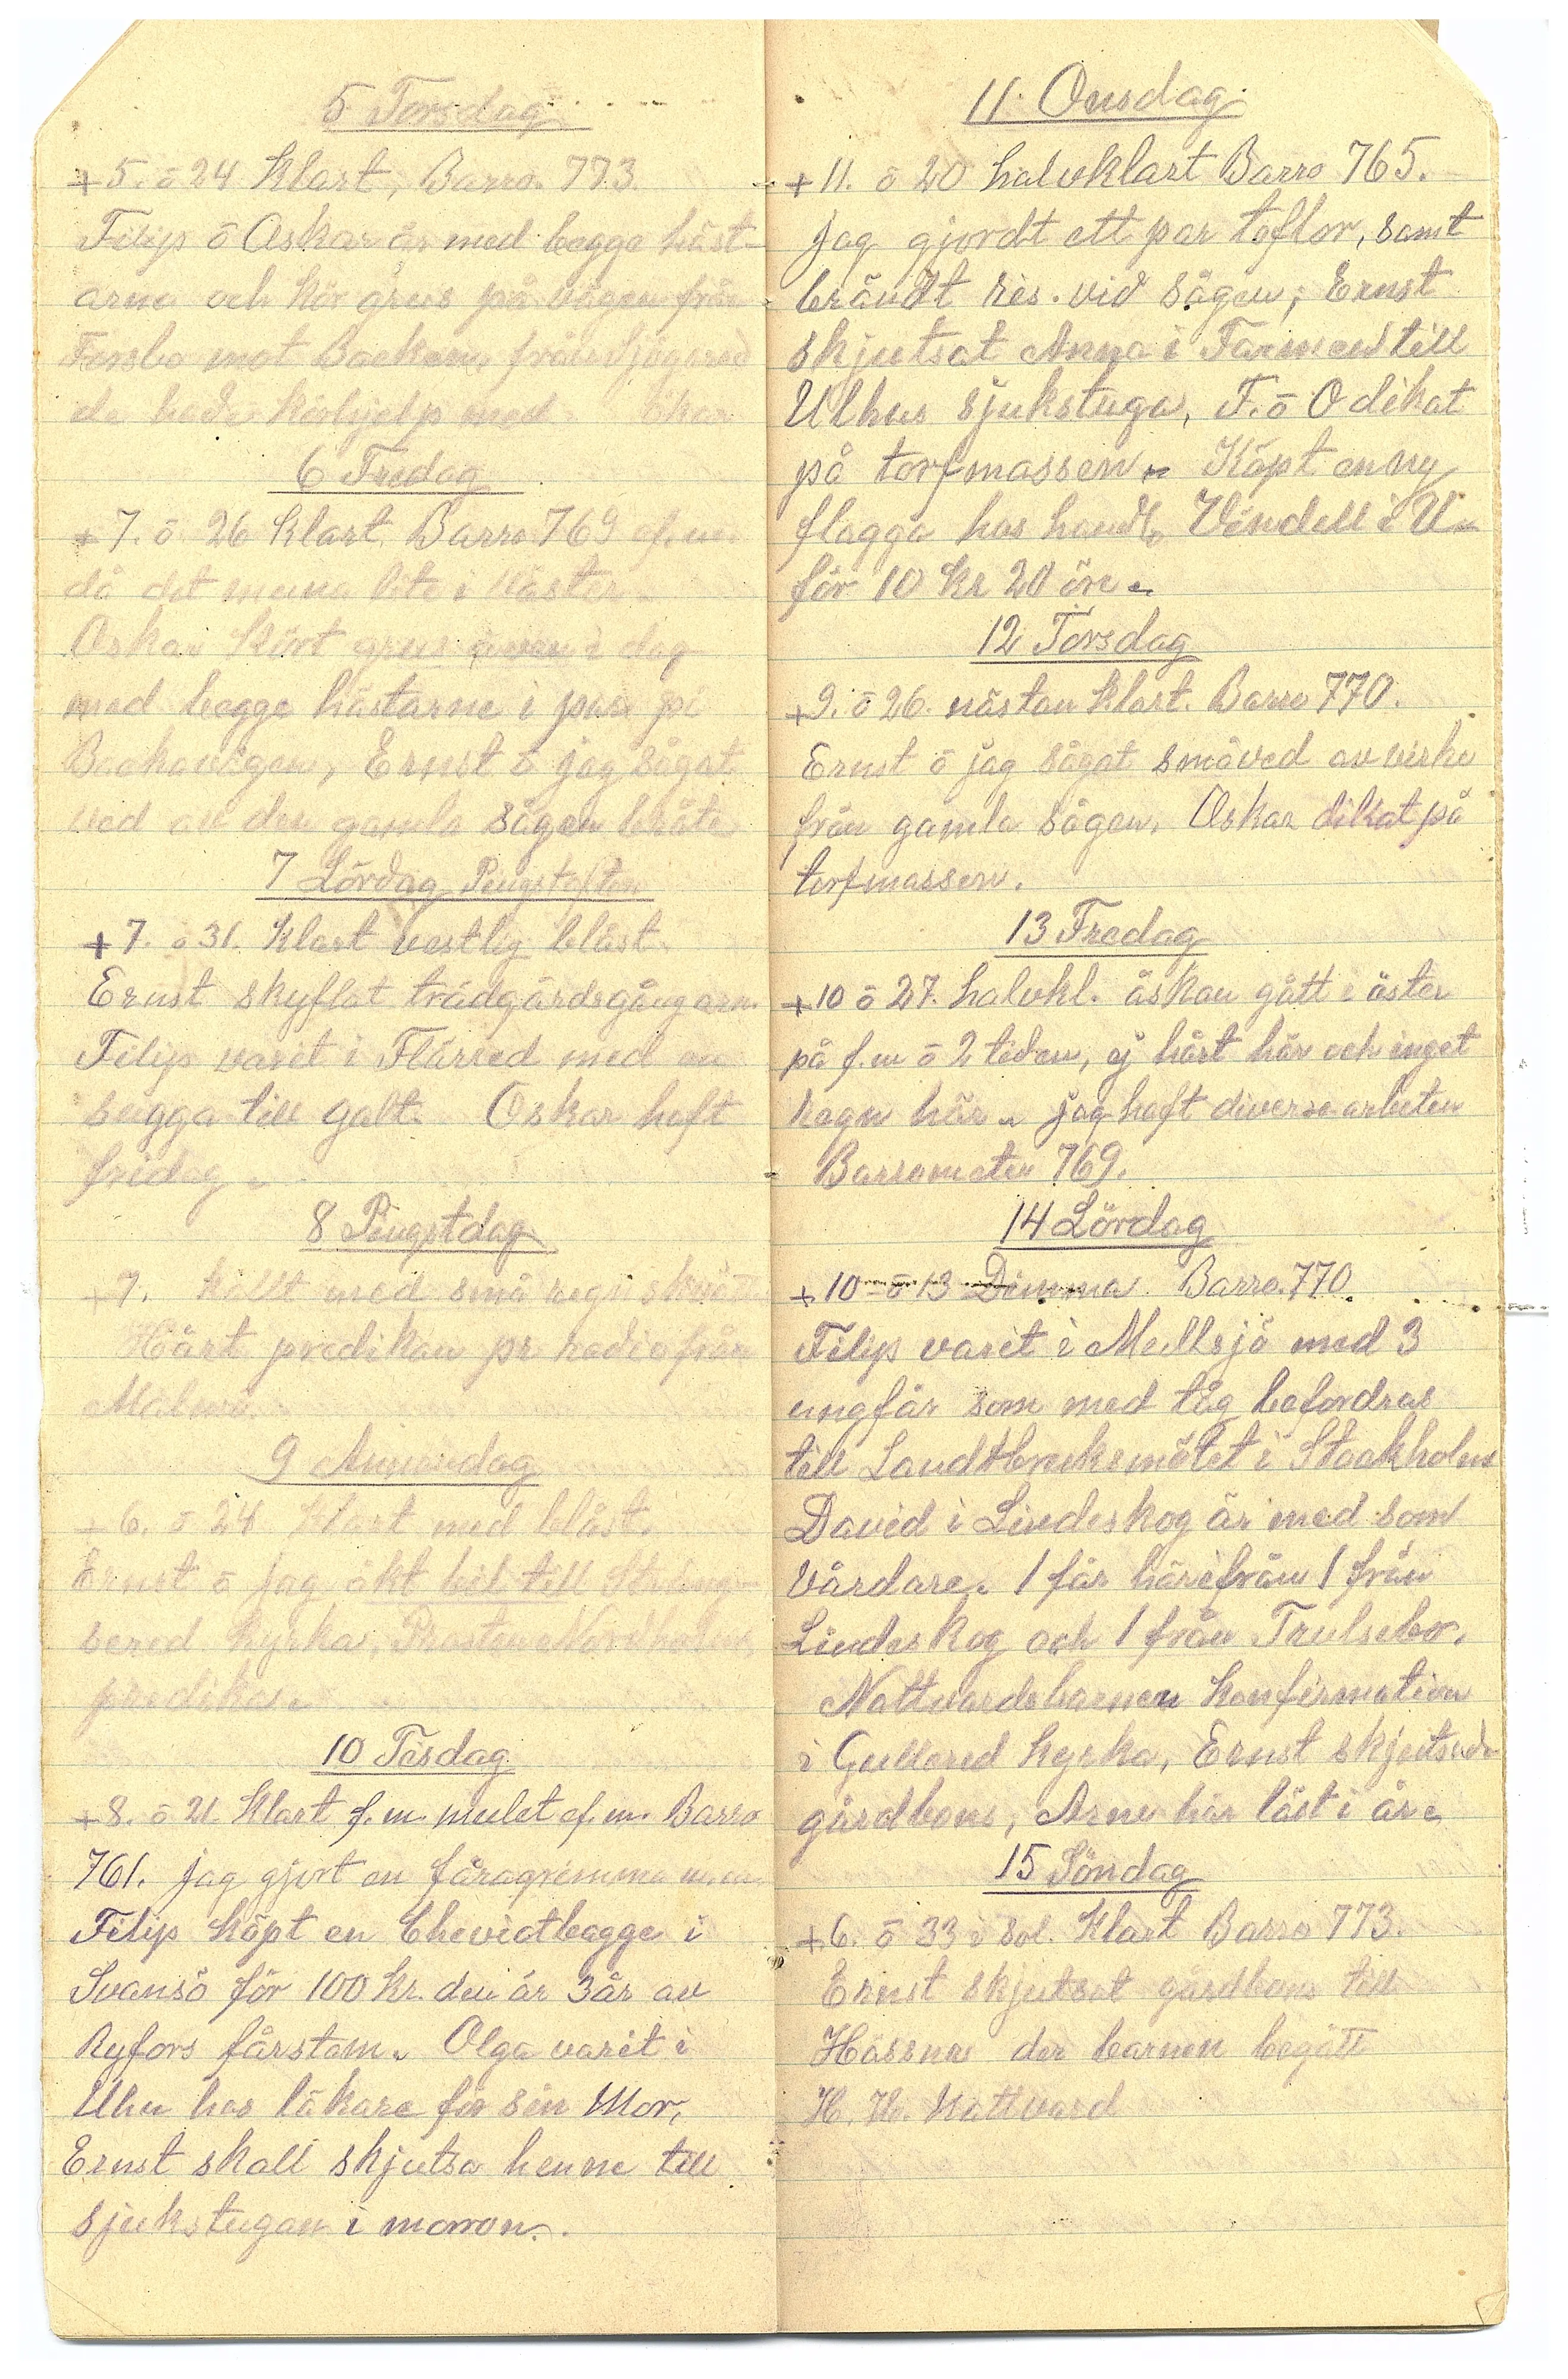 5 Torsdag
+5. ō 24 Klart, Barro. 773.
Filip ō Oskar är med begge häst-
arna och kör grus på vägen från
Forsbo mot Backen, från
de hade körhjelp med
6 Fredag
+7. ō 26 Klart. Barro 769 ef.m.
då det lite i Väster.
Oskar Kört grus även i dag
med begge hästarne i par på
Backavägen, Ernst ō jag sågat
ved av den gamla sågen bråte
7 Lördag Pingstafton
+7. ō 31. Klart vestlig blåst.
Ernst skyflat trädgårdsgångarn.
Filip varit i Flärred med en
sugga till galt. Oskar haft
fridag.
8 Pingstdag
+7. kallt med små regnskvätt
Hört predikan pr radio från
Malmö.
9 Annandag
+6. ō 24 Klart med blåst.
Ernst ō Jag åkt bil till Sträng-
sered Kyrka, Prosten Nordholm
predika.
10 Tisdag
+8. ō 21. Klart f.m. mulet ef.m. Barro
761. Jag gjort en fåragrimma m.m.
Filip Köpt en Cheviotbagge i
Svansö för 100 Kr. den är 3 år av
Ryfors fårstam. Olga varit i
Uhu hos läkare för sin Mor,
Ernst skall skjutsa henne till
sjukstugan i morron.
11. Onsdag
+11. ō 20 halvklart Barro 765.
Jag gjordt ett par toflor, samt
brändt ris. vid sågen; Ernst
skjutsat Anna i Farmen till
Ulhus sjukstuga, F. ō O dikat
på torfmassen. Köpt en ny
flagga hos handl. Vendell i U-
för 10 Kr 20 öre.
12 Torsdag
+9. ō 26. nästan Klart. Barro 770.
Ernst ō jag sågat småved av virke
från gamla sågen, Oskar dikat på
torfmassen.
13 Fredag
+10 ō 27. halvkl. åskan gått i öster
på f.m ō 2 tiden, ej hårt här och inget
Regn här. Jag haft diverse arbeten
Barrometer 769.
14 Lördag
+10 ō 13 Dimma. Barro. 770
Filip varit i Mullsjö med 3
ungfår som med tåg befordras
till Landtbruksmötet i Stockholm
David i Lindeskog är med som
Vårdare. 1 får härifrån 1 från
Lindeskog och 1 från Trulsebo.
Nattvardsbarnen Konfirmation
i Gullered Kyrka, Ernst skjutsade
gårdbons, Arne här läst i år.
15 Söndag
+6. ō 33 i Sol. Klart Barro 773.
Ernst skjutsat gårdbons till
Hössna der barnen begått
H. H. Nattvard